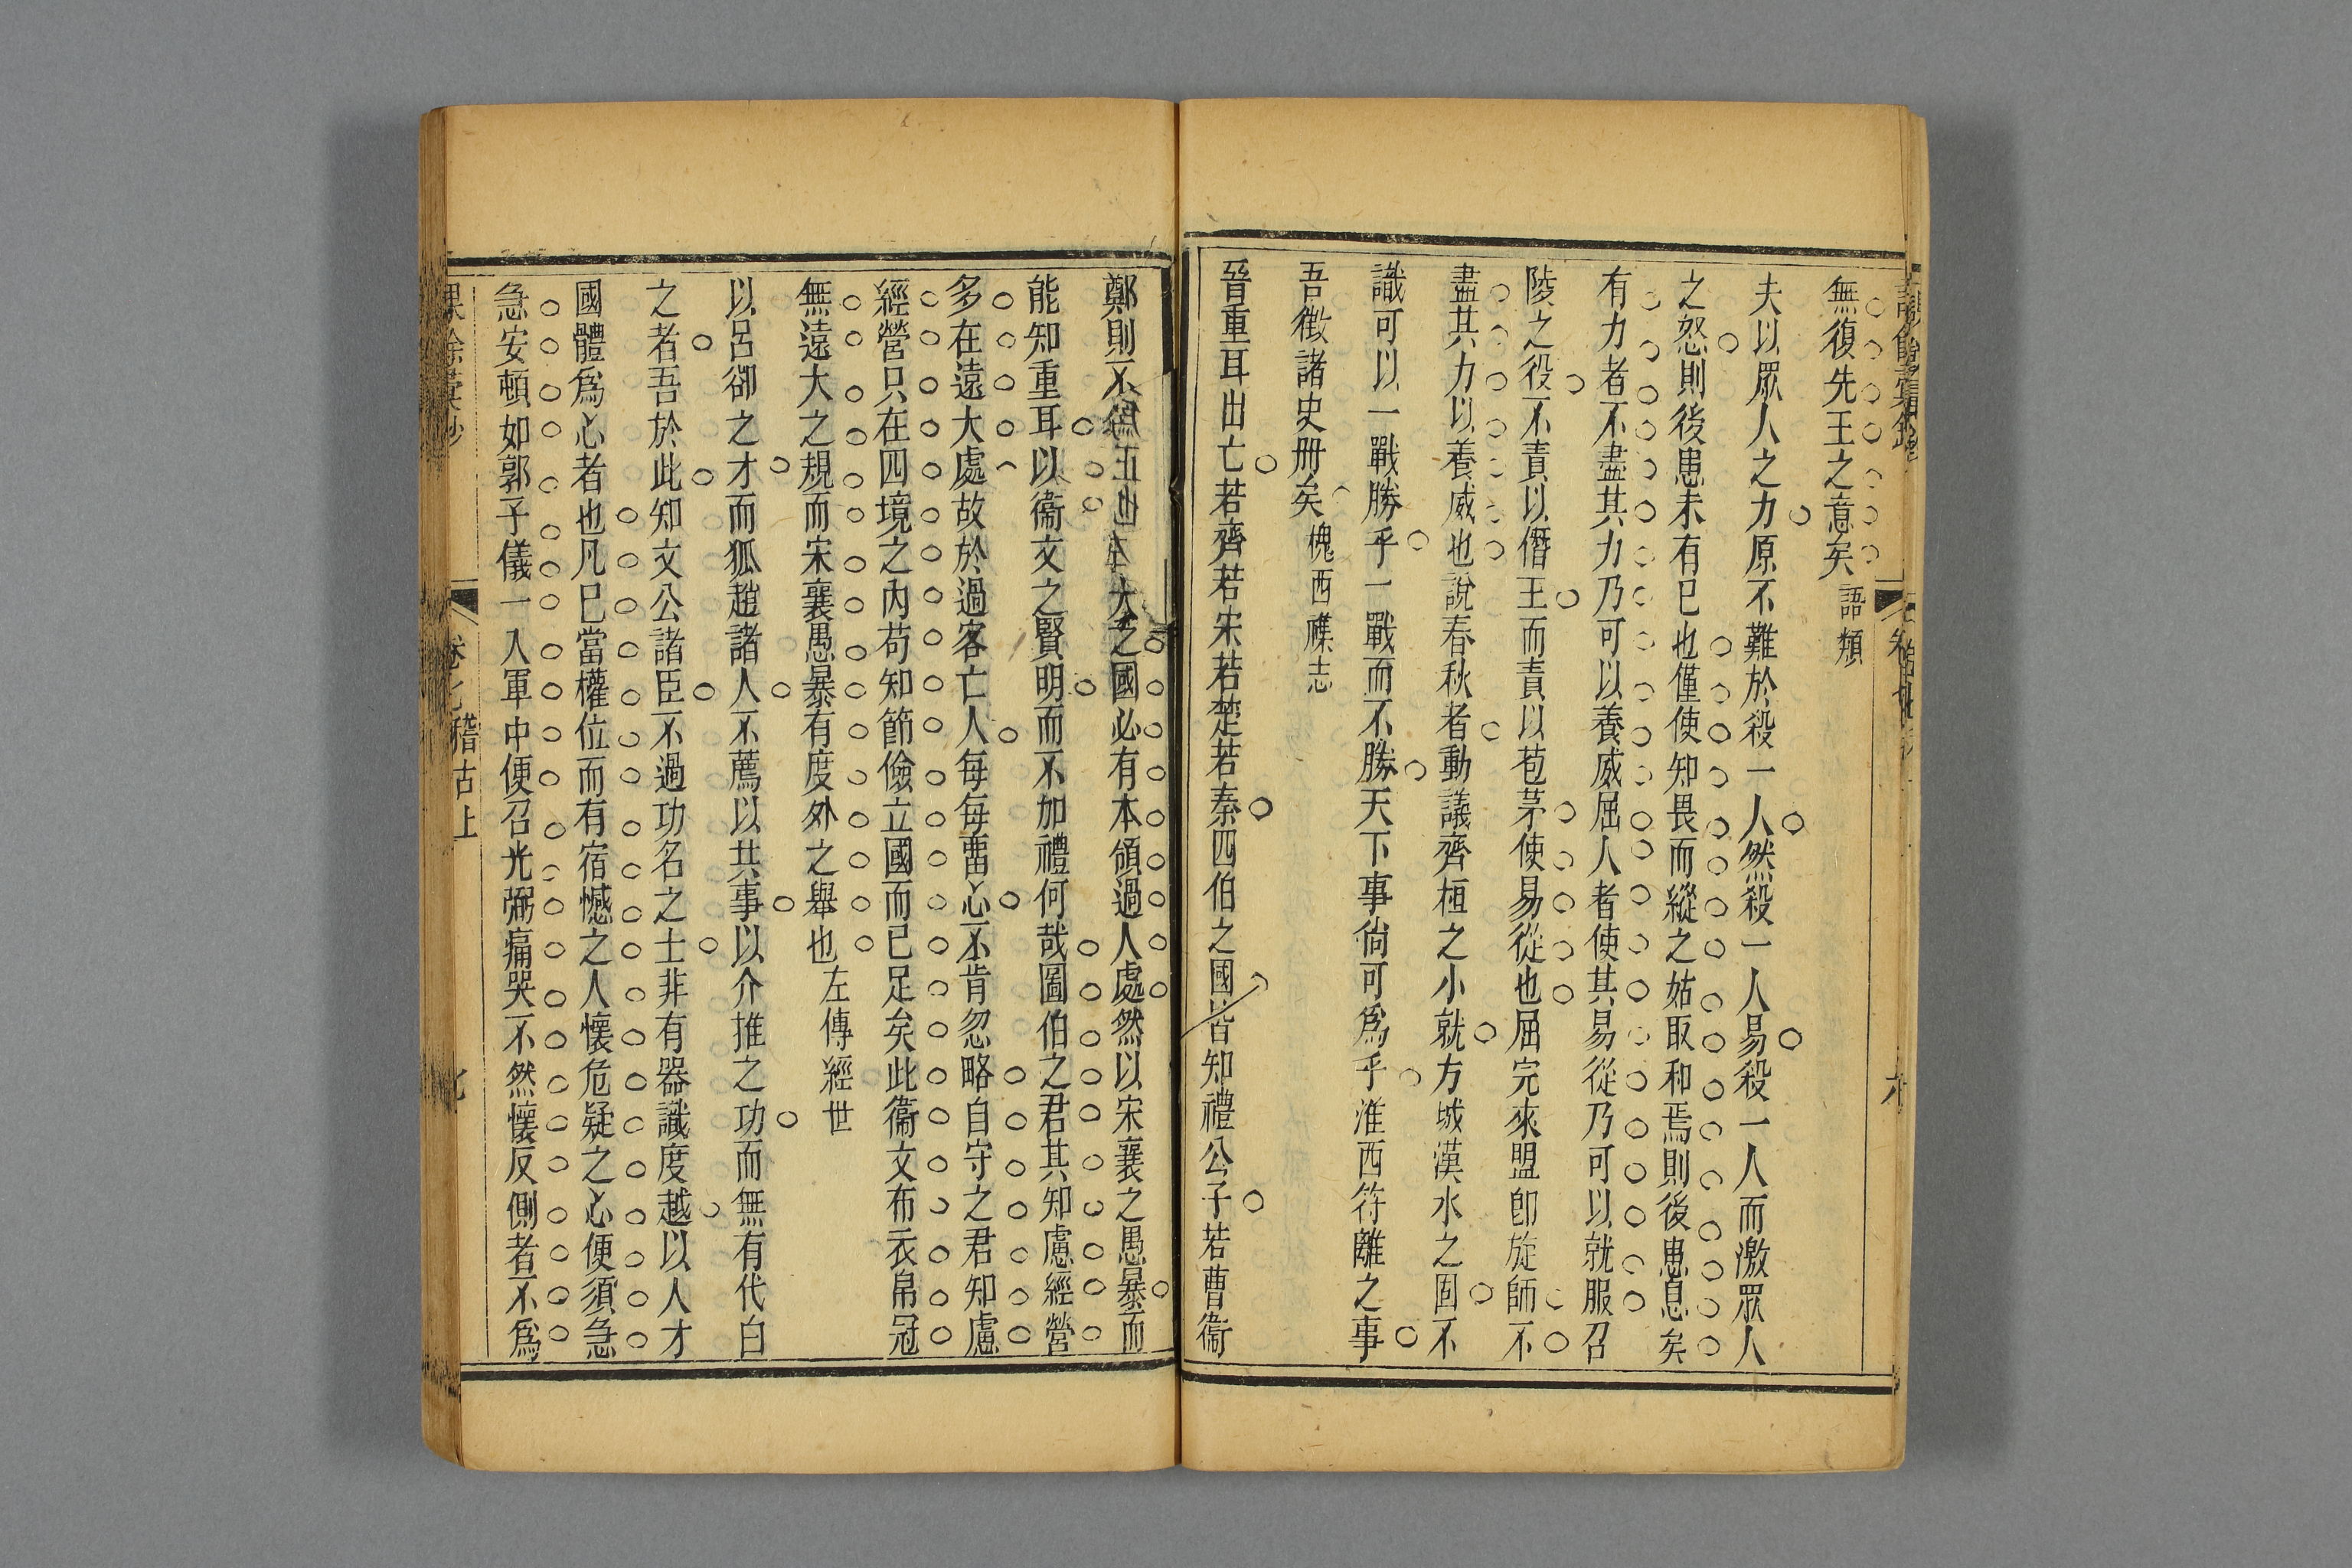 無復先王之意矣 語類
夫以眾人之力原不難於殺一人然殺一人易殺一人而激眾人
之怒則後患未有已也僅使知畏而縱之姑取和焉則後患息矣
有力者不盡其力乃可以養威屈人者使其易從乃可以就服召
陵之役不責以僭王而責以苞茅使易從也屈完來盟卽旋師不
盡其力以養威也說春秋者動議齊桓之小就方城漢水之固不
識可以一戰勝乎一戰而不勝天下事尙可爲乎淮西符離之事
吾徵諸史册矣 槐西襍志
晉重耳出亡若齊若宋若楚若秦四伯之國皆知禮公子若曹衞
鄭則不然五也大之國必有本領過人處然以宋襄之愚暴而
能知重耳以衞文之賢明而不加禮何哉圖伯之君其知慮經營
多在遠大處故於過客亡人每每畱心不肯忽略自守之君知慮
經營只在四境之內苟知節儉立國而已足矣此衞文布衣帛冠
無遠大之規而宋襄愚暴有度外之舉也 左傳經世
以呂郤之才而狐趙諸人不薦以共事以介推之功而無有代白
之者吾於此知文公諸臣不過功名之士非有器識度越以人才
國體爲心者也凡已當權位而有宿憾之人懷危疑之心便須急
急安頓如郭子儀一入軍中便召光弼痛哭不然懷反側者不爲
卷七 稽古上